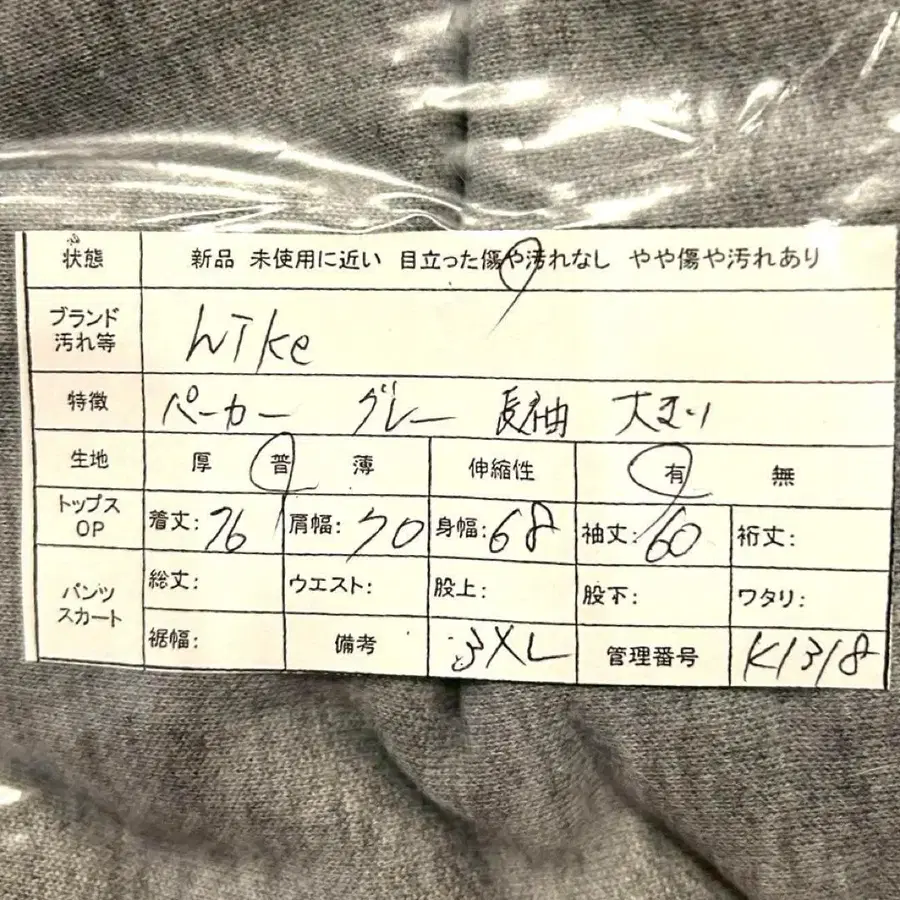 状態 新品 未使用に近い 目立った傷や汚れなし やや傷や汚れあり
ブランド
汚れ等 NIke
特徴 パーカー グレー 長袖
生地 厚 普 薄 伸縮性 有 無
トップス
OP 着丈:76 肩幅:70 身幅:68 袖丈:60 裄丈:
パンツ
スカート 総丈: ウエスト: 股上: 股下: ワタリ:
裾幅: 備考 3XL 管理番号 K1318